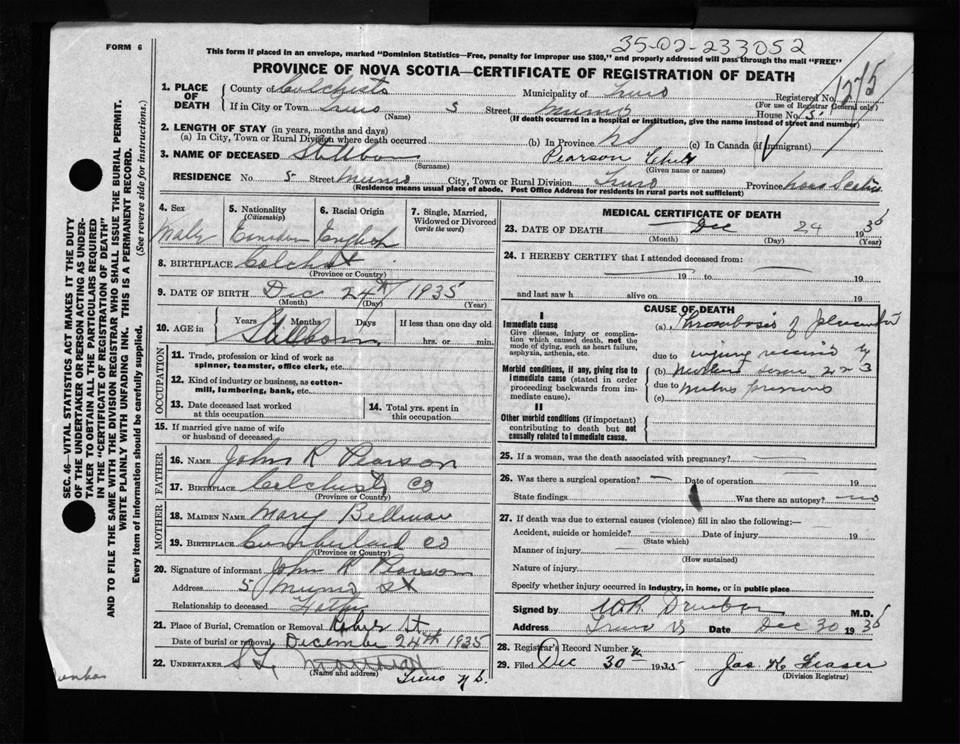 FORM 6
35-02-233052
This form if placed in an envelope, marked "Dominion Statistics—Free, penalty for improper use $300," and properly addressed will pass through the mail "FREE"
PROVINCE OF NOVA SCOTIA—CERTIFICATE OF REGISTRATION OF DEATH
SEC. 46—VITAL STATISTICS ACT MAKES IT THE DUTY
OF THE UNDERTAKER OR PERSON ACTING AS UNDER-
TAKER TO OBTAIN ALL THE PARTICULARS REQUIRED
IN THE "CERTIFICATE OF REGISTRATION OF DEATH"
AND TO FILE THE SAME WITH THE DIVISION REGISTRAR WHO SHALL ISSUE THE BURIAL PERMIT.
WRITE PLAINLY WITH UNFADING INK. THIS IS A PERMANENT RECORD.
Every item of information should be carefully supplied.
(See reverse side for instructions.)
1. PLACE OF DEATH
County of Municipality of Truro Registered No. 1275
(For use of Registrar General only)
If in City or Town Truro 5 Street Munro House No. 5
(Name) (If death occurred in a hospital or institution, give the name instead of street and number)
2. LENGTH OF STAY (in years, months and days)
(a) In City, Town or Rural Division where death occurred (b) In Province (c) In Canada (if immigrant)
3. NAME OF DECEASED Stillborn Pearson
(Surname) (Given name or names)
RESIDENCE No. 5 Street Munro City, Town or Rural Division Truro Province Nova Scotia
(Residence means usual place of abode. Post Office Address for residents in rural parts not sufficient)
4. Sex 5. Nationality (Citizenship) 6. Racial Origin 7. Single, Married, Widowed or Divorced (write the word)
Male English
8. BIRTHPLACE
(Province or Country)
9. DATE OF BIRTH Dec 24th 1935
(Month) (Day) (Year)
10. AGE in Years Months Days If less than one day old
Stillborn hrs. or min.
OCCUPATION
11. Trade, profession or kind of work as spinner, teamster, office clerk, etc.
12. Kind of industry or business, as cotton-mill, lumbering, bank, etc.
13. Date deceased last worked at this occupation
14. Total yrs. spent in this occupation
15. If married give name of wife or husband of deceased
FATHER
16. NAME John R Pearson
17. BIRTHPLACE Co
(Province or Country)
MOTHER
18. MAIDEN NAME Mary
19. BIRTHPLACE Cumberland Co
(Province or Country)
20. Signature of informant John R Pearson
Address 5 Munro St
Relationship to deceased Father
21. Place of Burial, Cremation or Removal St
Date of burial or removal December 24th 1935
22. UNDERTAKER
(Name and address)
Truro N.S.
MEDICAL CERTIFICATE OF DEATH
23. DATE OF DEATH Dec 24 193
(Month) (Day) (Year)
24. I HEREBY CERTIFY that I attended deceased from:
19 to 19
and last saw h alive on 19
CAUSE OF DEATH
I
Immediate cause
Give disease, injury or complication which caused death, not the mode of dying, such as heart failure, asphyxia, asthenia, etc.
Morbid conditions, if any, giving rise to immediate cause (stated in order proceeding backwards from immediate cause).
II
Other morbid conditions (if important) contributing to death but not causally related to immediate cause.
(a) Thrombosis of
due to injury received by
(b)
due to
(c)
25. If a woman, was the death associated with pregnancy?
26. Was there a surgical operation? Date of operation 19
State findings Was there an autopsy? no
27. If death was due to external causes (violence) fill in also the following:—
Accident, suicide or homicide? Date of injury 19
(State which)
Manner of injury
(How sustained)
Nature of injury
Specify whether injury occurred in industry, in home, or in public place
Signed by M.D.
Address Truro NS Date Dec 30 193
28. Registrar's Record Number
29. Filed Dec 30th 1935 Jas K Fraser
(Division Registrar)